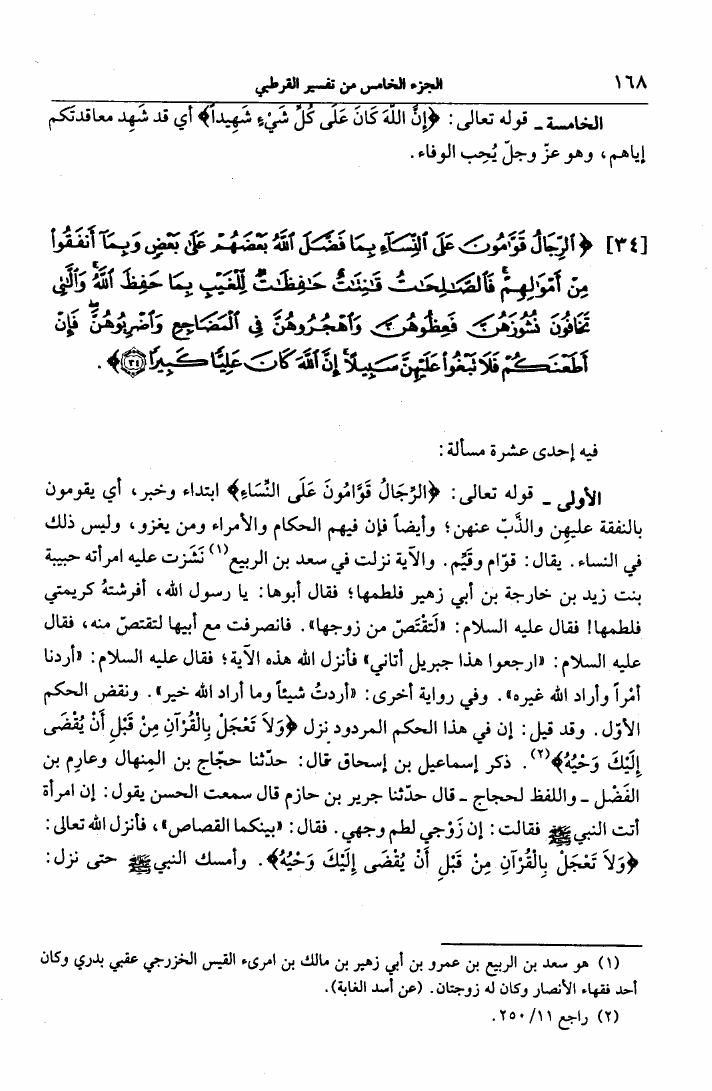 ١٦٨ الجزء الخامس من تفسير القرطبي
الخامسة ـ قوله تعالى: ﴿إِنَّ اللَّهَ كَانَ عَلَى كُلِّ شَيْءٍ شَهِيداً﴾ أي قد شَهِد معاقدتَكم
إياهم، وهو عزّ وجلّ يُحِب الوفاء.
[٣٤] ﴿ٱلرِّجَالُ قَوَّٰمُونَ عَلَى ٱلنِّسَآءِ بِمَا فَضَّلَ ٱللَّهُ بَعْضَهُمْ عَلَىٰ بَعْضٍ وَبِمَآ أَنفَقُوا۟
مِنْ أَمْوَٰلِهِمْ ۚ فَٱلصَّٰلِحَٰتُ قَٰنِتَٰتٌ حَٰفِظَٰتٌ لِّلْغَيْبِ بِمَا حَفِظَ ٱللَّهُ ۚ وَٱلَّٰتِى
تَخَافُونَ نُشُوزَهُنَّ فَعِظُوهُنَّ وَٱهْجُرُوهُنَّ فِى ٱلْمَضَاجِعِ وَٱضْرِبُوهُنَّ ۖ فَإِنْ
أَطَعْنَكُمْ فَلَا تَبْغُوا۟ عَلَيْهِنَّ سَبِيلًا ۗ إِنَّ ٱللَّهَ كَانَ عَلِيًّا كَبِيرًا ٣٤﴾.
فيه إحدى عشرة مسألة:
الأولى ـ قوله تعالى: ﴿الرِّجَالُ قَوَّامُونَ عَلَى النِّسَاءِ﴾ ابتداء وخبر، أي يقومون
بالنفقة عليهن والذَّبّ عنهن؛ وأيضاً فإن فيهم الحكام والأمراء ومن يغزو، وليس ذلك
في النساء. يقال: قوّام وقيِّم. والآية نزلت في سعد بن الربيع(١) نَشَزت عليه امرأته حبيبة
بنت زيد بن خارجة بن أبي زهير فلطمها؛ فقال أبوها: يا رسول الله، أفرشتهُ كريمتي
فلطمها! فقال عليه السلام: «لَتَقْتَصّ من زوجها». فانصرفت مع أبيها لتقتصّ منه، فقال
عليه السلام: «ارجعوا هذا جبريل أتاني» فأنزل الله هذه الآية؛ فقال عليه السلام: «أردنا
أمْراً وأراد الله غيره». وفي رواية أخرى: «أردتُ شيئاً وما أراد الله خير». ونقض الحكم
الأوّل. وقد قيل: إن في هذا الحكم المردود نزل ﴿وَلَا تَعْجَلْ بِالْقُرْآنِ مِنْ قَبْلِ أَنْ يُقْضَى
إِلَيْكَ وَحْيُهُ﴾(٢). ذكر إسماعيل بن إسحاق قال: حدّثنا حجّاج بن المِنهال وعارِم بن
الفَضْل ـ واللفظ لحجاج ـ قال حدّثنا جرير بن حازم قال سمعت الحسن يقول: إن امرأة
أتت النبي ﷺ فقالت: إن زَوْجي لطم وجهي. فقال: «بينكما القصاص»، فأنزل الله تعالى:
﴿وَلَا تَعْجَلْ بِالْقُرْآنِ مِنْ قَبْلِ أَنْ يُقْضَى إِلَيْكَ وَحْيُهُ﴾. وأمسك النبي ﷺ حتى نزل:
(١) هو سعد بن الربيع بن عمرو بن أبي زهير بن مالك بن امرىء القيس الخزرجي عقبي بدري وكان
أحد فقهاء الأنصار وكان له زوجتان. (عن أسد الغابة).
(٢) راجع ٢٥٠/١١.